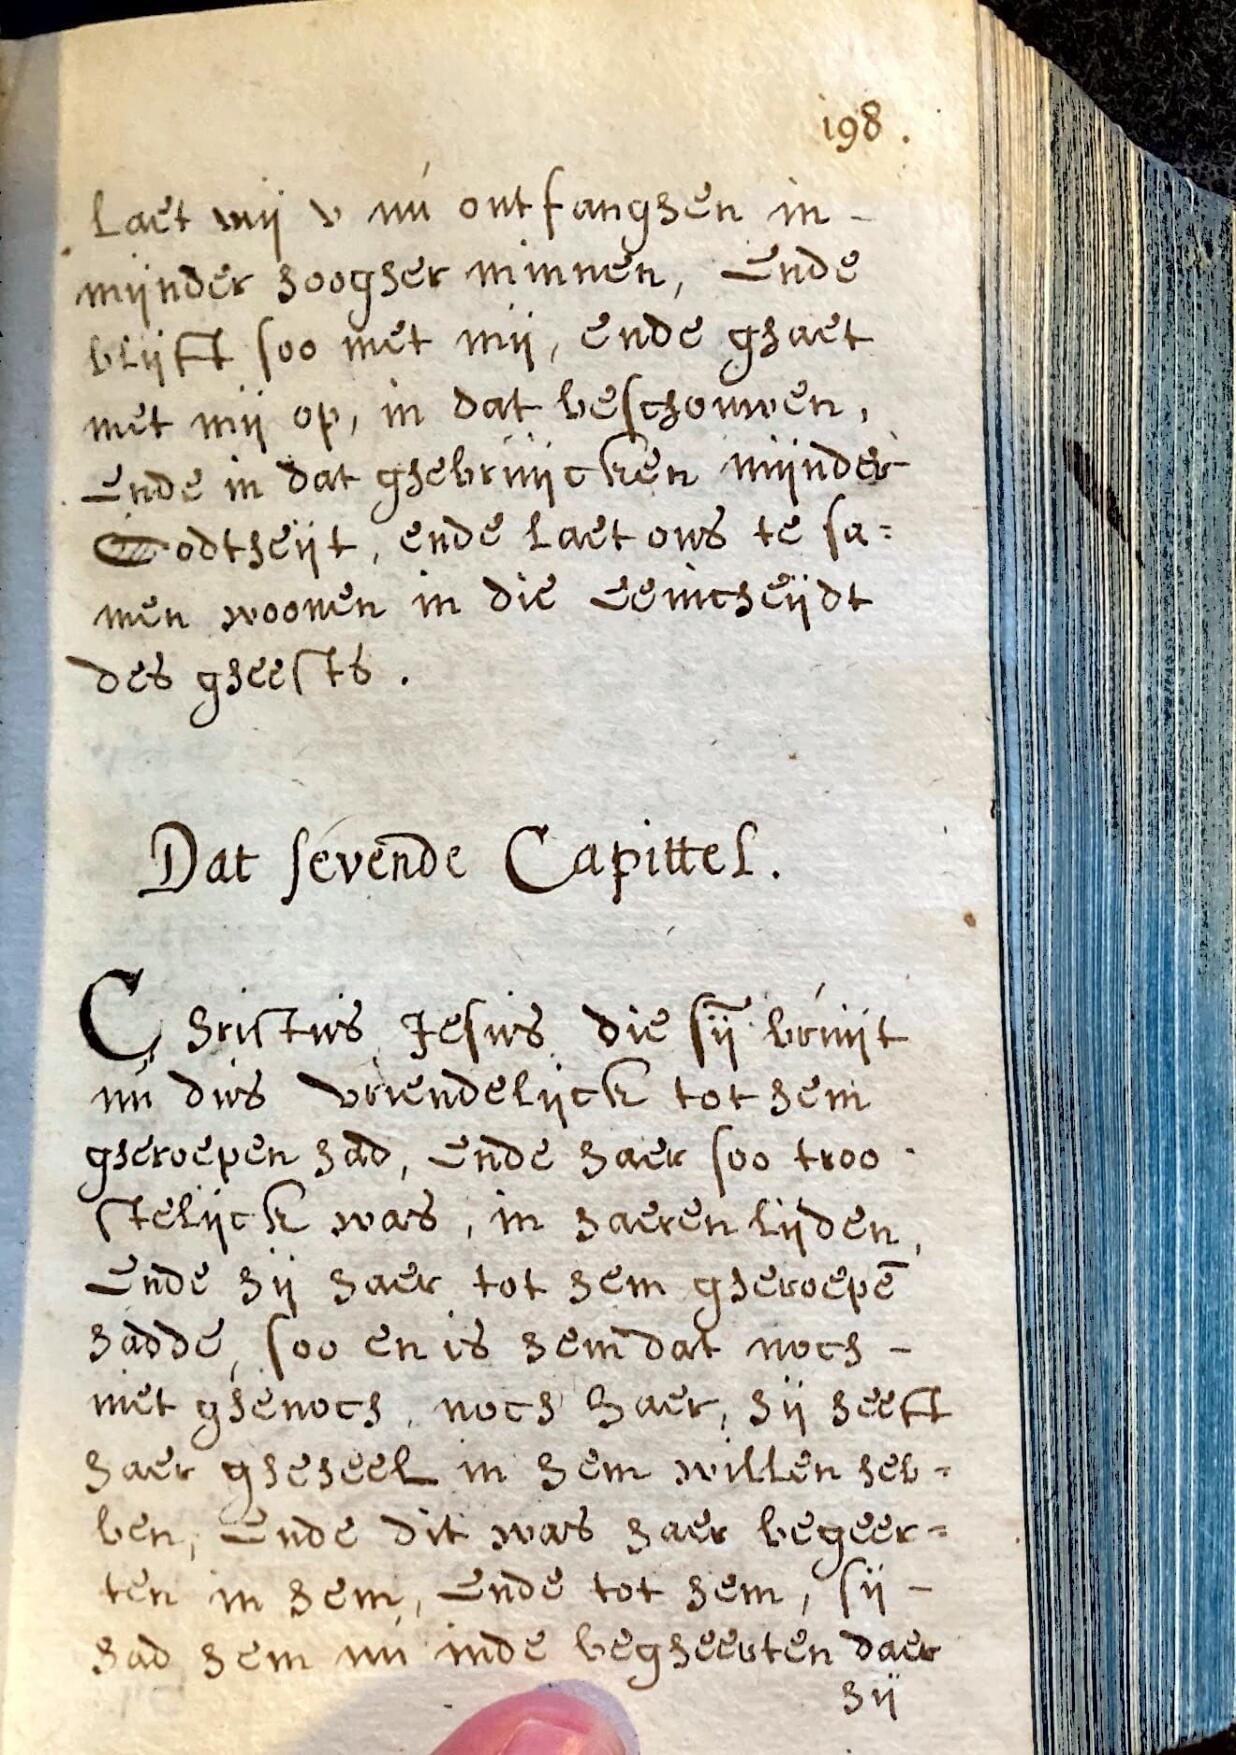 198.
Laet mij v nú ontfanghen in-
mijnder hoogher minnen, Ende
blijft soo met mij, ende ghaet
met mij op, in dat beschouwen,
Ende in dat ghebruijcken mijnder
Godtheijt, ende laet ons te sa=
men woonen in die Eeincheijdt
des gheests.
Dat sevende Capittel.
Christus Jesus die sij̄ bruijt
nú dus vriendelijck tot hem
gheroepen had, Ende haer soo troo
stelijck was, in haeren lijden,
Ende hij haer tot hem gheroepē
hadde, soo en is hem dat noch-
niet ghenoch, noch haer, hij heeft
haer gheheel in hem willen heb=
ben, Ende dit was haer begeer=
ten in hem, Ende tot hem, sij-
had hem nú inde begheerten daer
hij